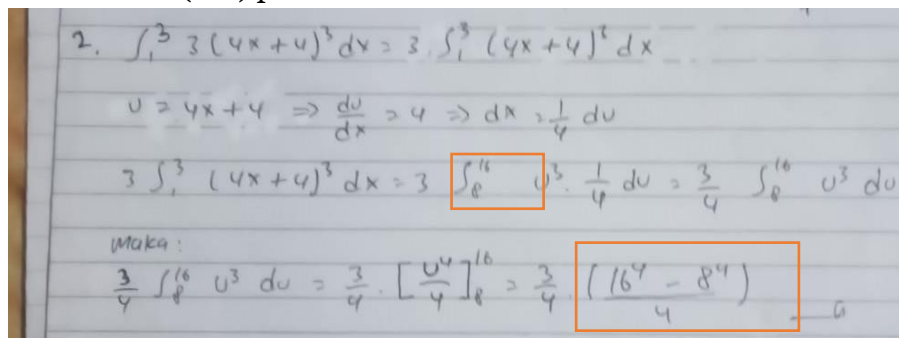 2. ∫₁³ 3 (4x + 4)³ dx = 3 . ∫₁³ (4x + 4)³ dx
u = 4x + 4 ⇒ du/dx = 4 ⇒ dx = 1/4 du
3 ∫₁³ (4x + 4)³ dx = 3 ∫₈¹⁶ u³ . 1/4 du = 3/4 ∫₈¹⁶ u³ du
Maka :
3/4 ∫₈¹⁶ u³ du = 3/4 . [u⁴/4]₈¹⁶ = 3/4 . (16⁴ - 8⁴)/4